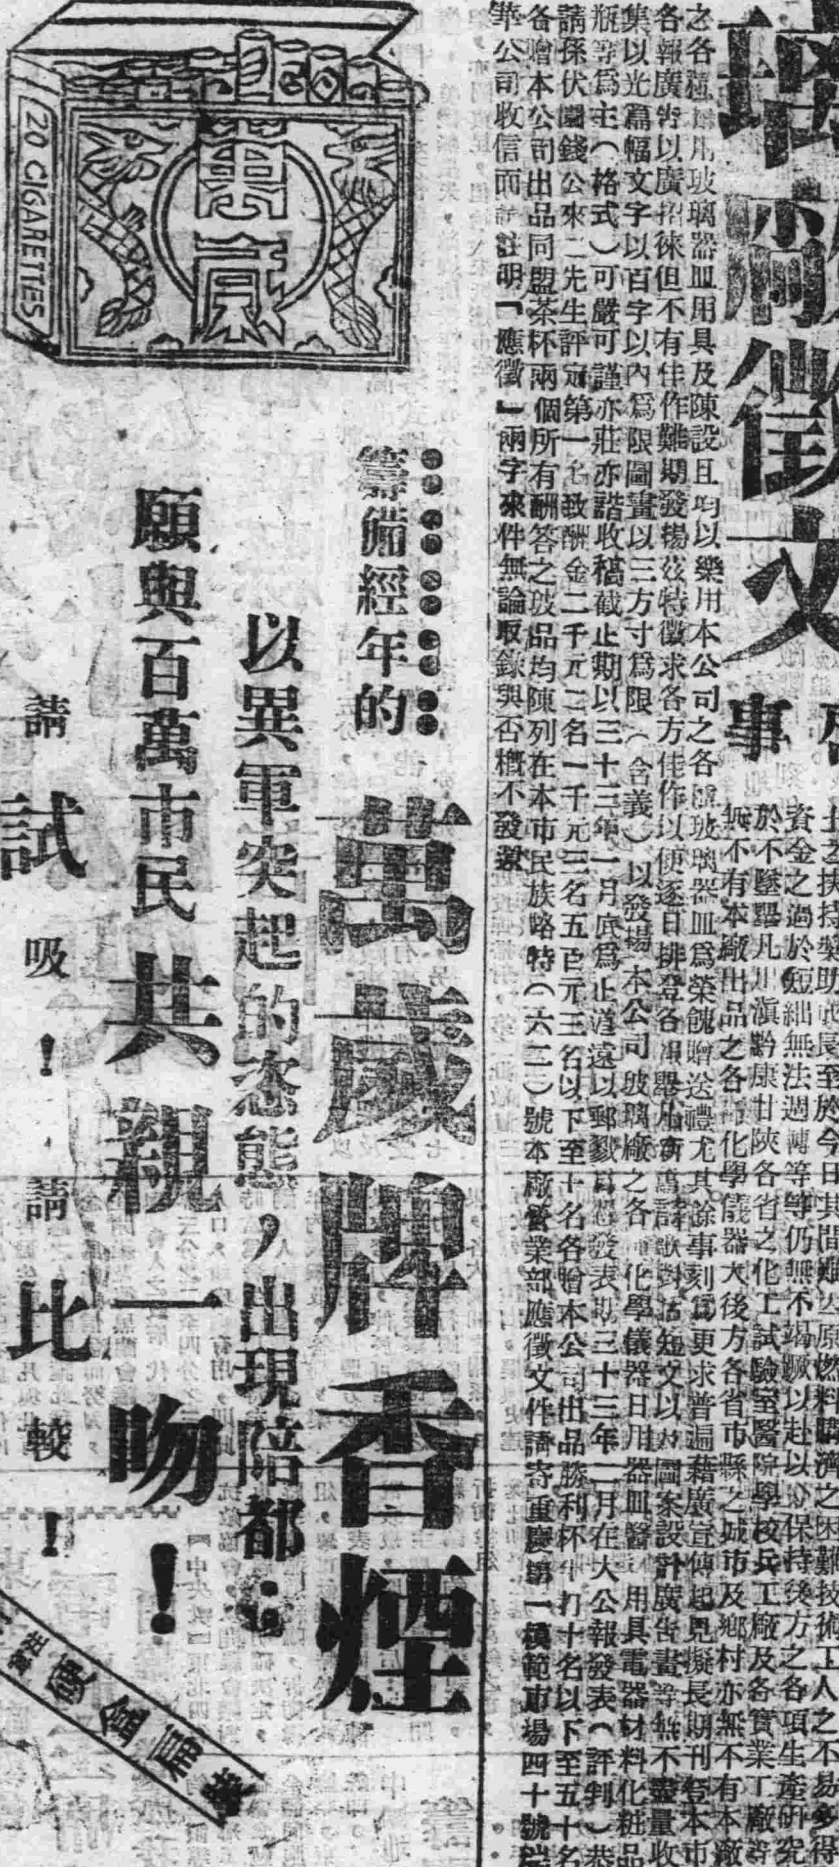 徵文
事
資金之過於短絀無法週轉等等仍無不竭蹶以赴以保持後方之各項生產研究
於不墜凡川滇黔康甘陝各省之化工試驗室醫院學校兵工廠及各實業工廠等
無不有本廠出品之各化學儀器大後方各省市縣之城市及鄉村亦無不有本廠
之各玻璃器皿用具及陳設且均以樂用本公司之各玻璃器皿為榮餽贈送禮尤其餘事刻為更求普遍藉廣宣傳起見擬長期刊登本市
各報廣告以廣招徠但不有佳作難期發揚茲特徵求各方佳作以便逐日排登各短文以及圖案設計廣告畫等無不盡量收
集以光篇幅文字以百字以內為限圖畫以三方寸為限（含義）以發揚本公司玻璃廠之各化學儀器日用器皿醫用具電器材料化粧品
瓶等為主（格式）可嚴可謹亦莊亦諧收稿截止期以三十三年一月底為止道遠以郵戳為憑發表期三十三年二月在大公報發表（評判）恭
請孫伏園錢公來二先生評定第一名致酬金二千元二名一千元三名五百元三名以下至十名各贈本公司出品勝利杯半打十名以下至五十名
各贈本公司出品同盟茶杯兩個所有酬答之玻品均陳列在本市民族路特（六二）號本廠營業部應徵文件請寄重慶第一模範市場四十號瑞
華公司收信面註明「應徵」兩字來件無論取錄與否概不發還
20 CIGARETTES
萬歲
籌備經年的
萬歲牌香煙
以異軍突起的恣態，出現陪都；
願與百萬市民共親一吻！
請試吸！請比較！
硬盒